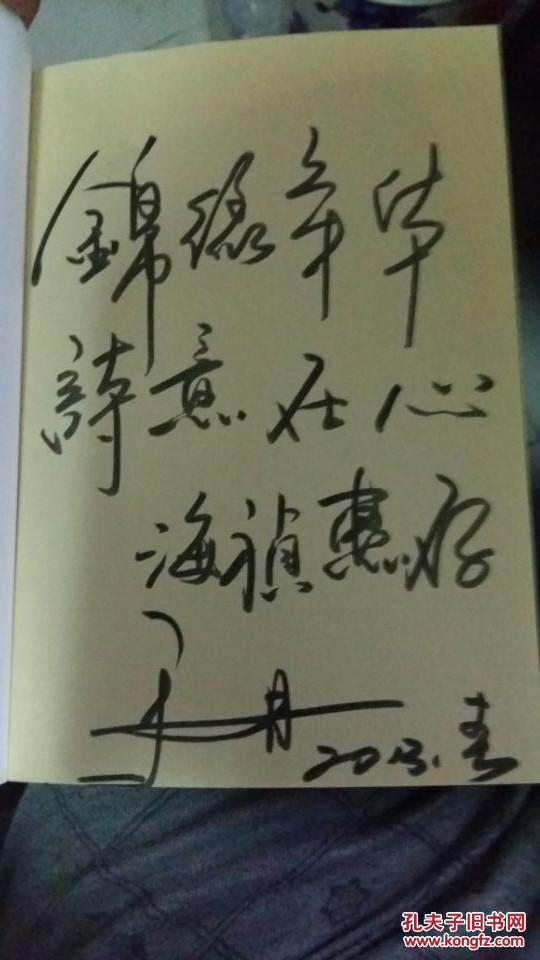 錦緣年华
詩意在心
海禎惠存
于丹
2013.春
孔夫子旧书网
www.kongfz.com